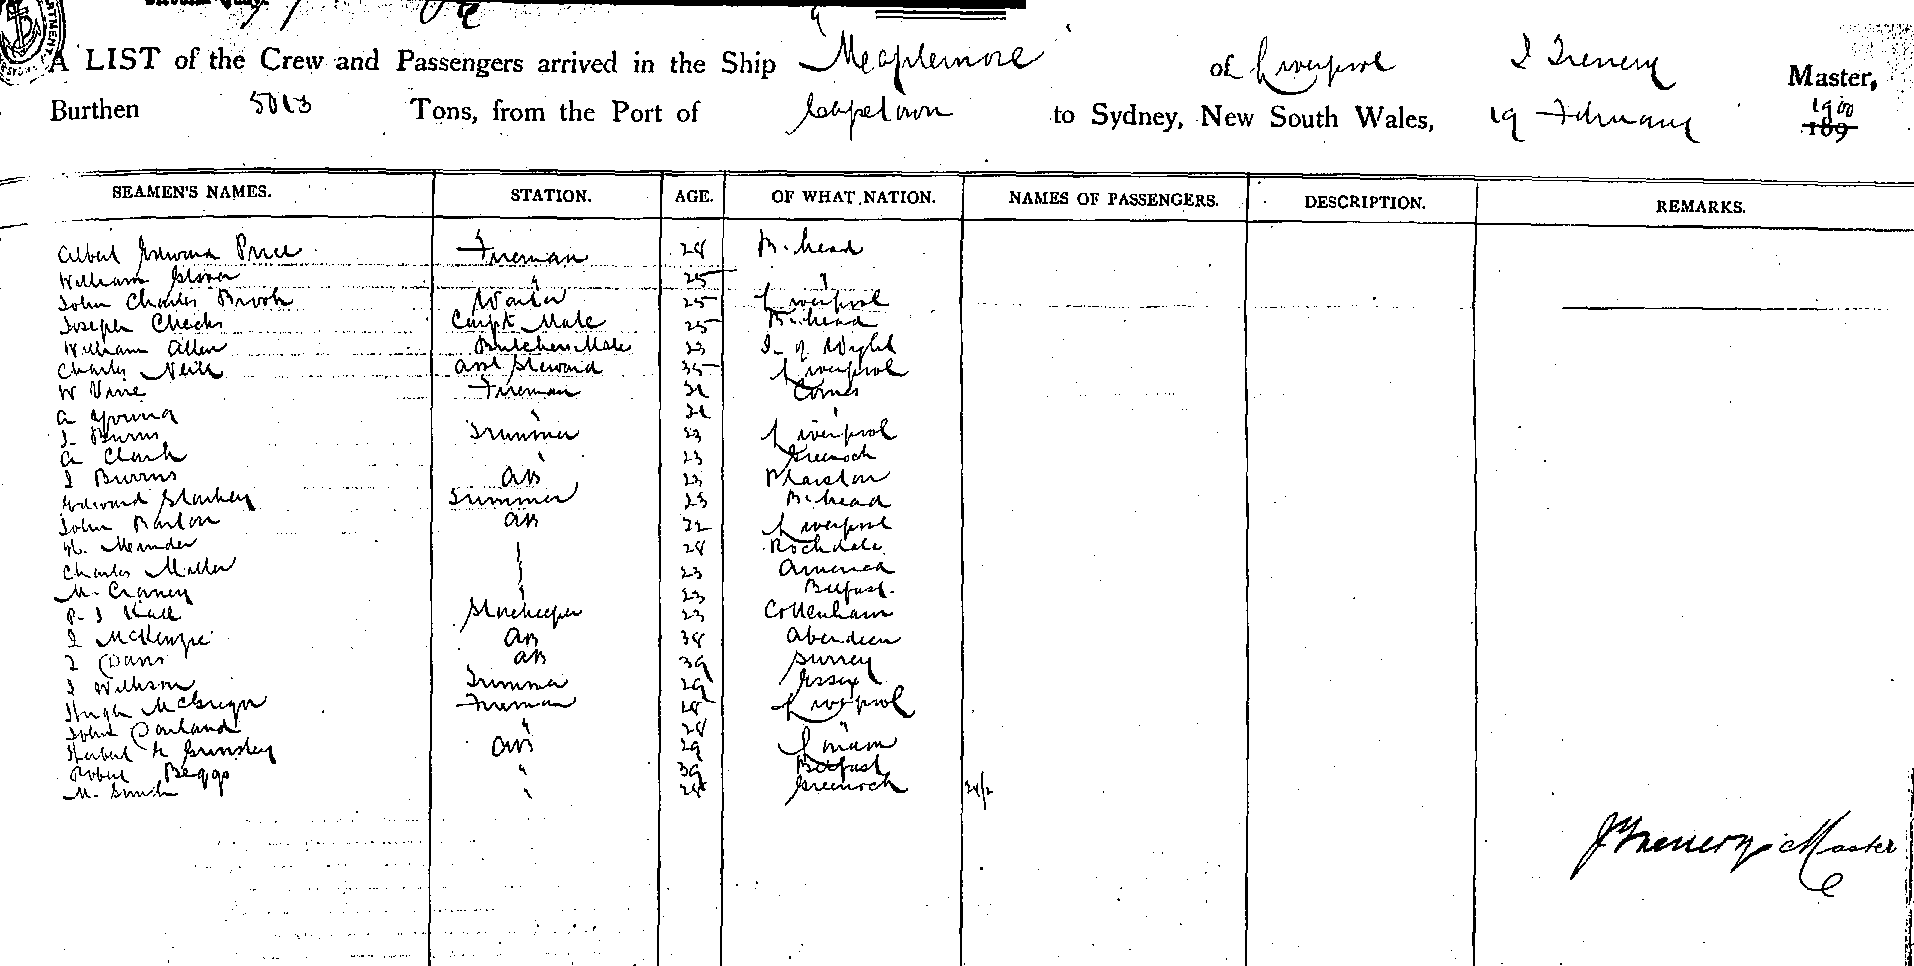 A LIST of the Crew and Passengers arrived in the Ship "Maplemore" of Liverpool J Trenery Master,
Burthen 5013 Tons, from the Port of Capetown to Sydney, New South Wales, 19 February 189 1900
SEAMEN'S NAMES. STATION. AGE. OF WHAT NATION. NAMES OF PASSENGERS. DESCRIPTION. REMARKS.
Albert Edward Price Fireman 28 B.head
William Glover " 25 "
John Charles Brook Waiter 25 Liverpool
Joseph Cheeks Carpt Mate 25 B.head
William Allen Butchers Mate 23 I. of Wight
Charles Asst Steward 35 Liverpool
W Vine Fireman 31
A Young " 31 "
J Burns Trimmer 23 Liverpool
A Clark " 23 Greenock
J Burns AB 23
Edward Starkey Trimmer 23 B.head
John Barton AB 32 Liverpool
28 Rochdale
Charles " 23 America
" 23 Belfast
Storekeeper 23 Cottenham
J McKenzie AB 38 Aberdeen
J Davis AB 39 Surrey
J Wilkson Trimmer 29 Essex
Hugh McGregor Fireman 28 Liverpool
John " 28 "
Herbert AB 29
Robert Beggs " 39 Belfast
M. Smith " 28 Greenock 24/2
J Trenery Master